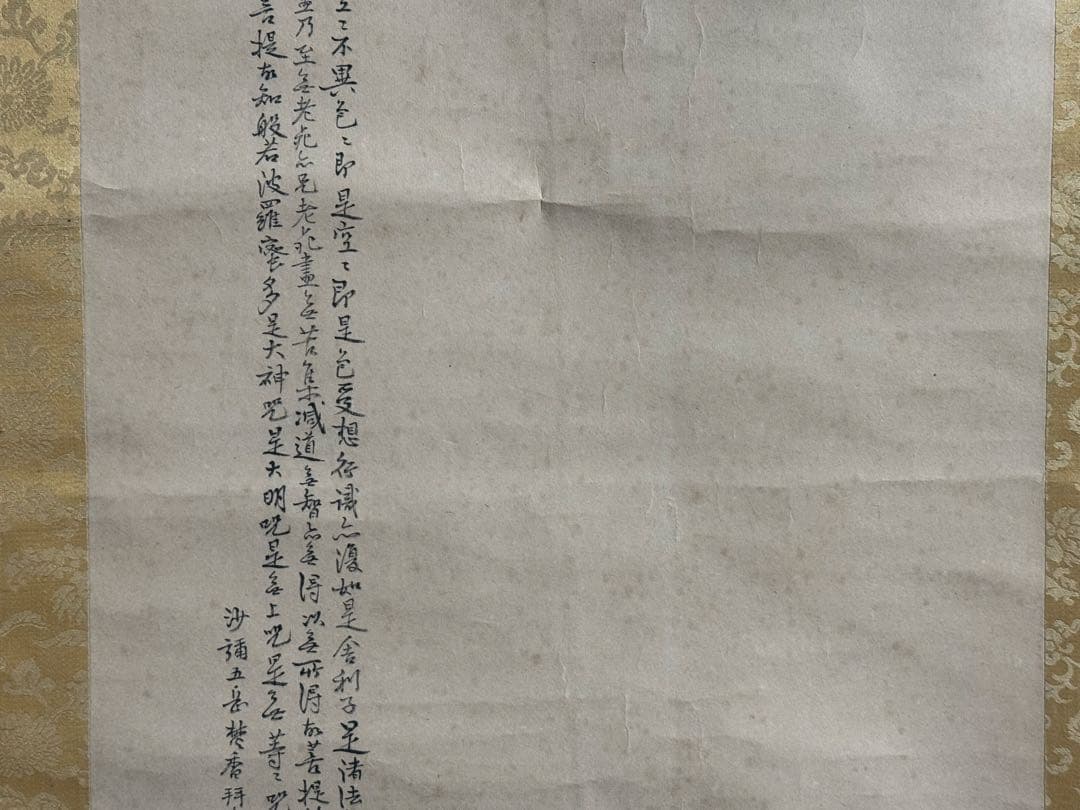 空〻不異色〻即是空〻即是色受想行識亦復如是舍利子是諸法
乃至無老死亦無老死盡無苦集滅道無智亦無得以無所得故菩提
菩提故知般若波羅蜜多是大神咒是大明咒是無上咒是無等〻咒
沙彌五岳焚香拜